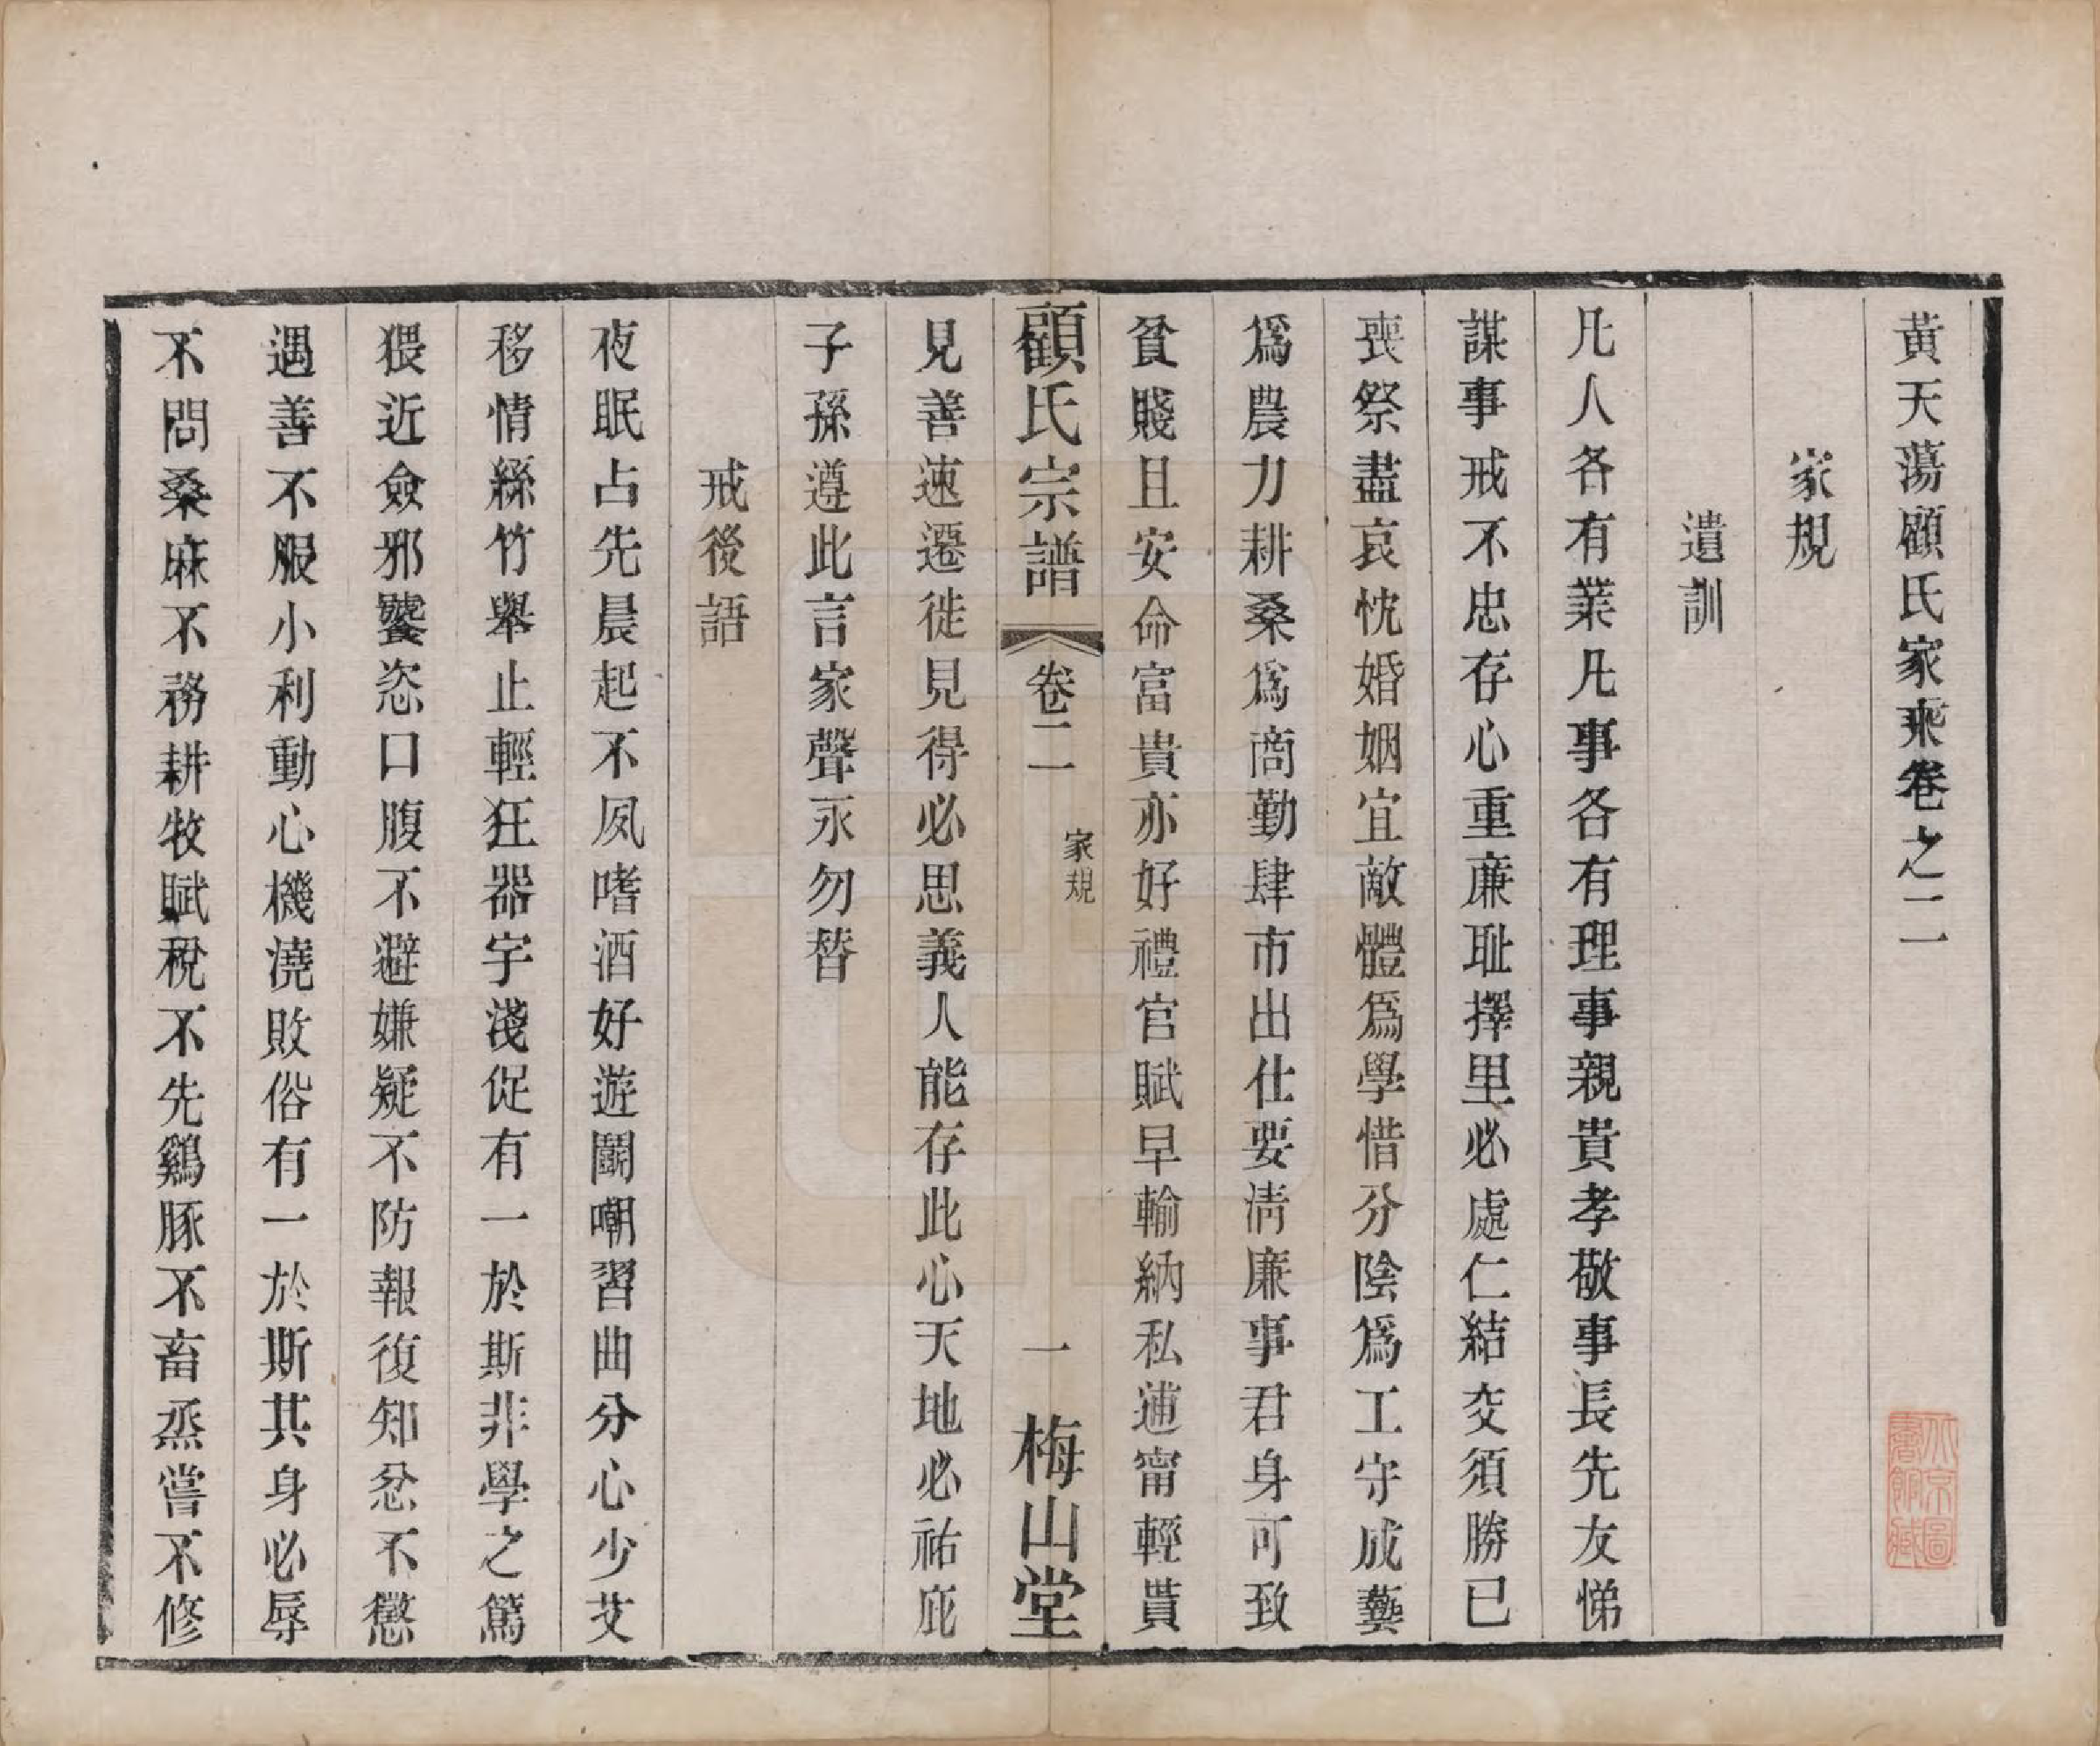 黃天蕩顧氏家乘卷之二
家規
遺訓
凡人各有業凡事各有理事親貴孝敬事長先友悌
謀事戒不忠存心重廉耻擇里必處仁結交須勝已
喪祭盡哀忱婚姻宜敵體爲學惜分陰爲工守成藝
爲農力耕桑爲商勤肆市出仕要清廉事君身可致
貧賤且安命富貴亦好禮官賦早輸納私逋甯輕貰
顧氏宗譜
卷二
家規
一
梅山堂
見善速遷徙見得必思義人能存此心天地必祐庇
子孫遵此言家聲永勿替
戒後語
夜眠占先晨起不夙嗜酒好遊鬬嘲習曲分心少艾
移情絲竹舉止輕狂器宇淺促有一於斯非學之篤
猥近僉邪饕恣口腹不避嫌疑不防報復知忿不懲
遇善不服小利動心機澆敗俗有一於斯其身必辱
不問桑麻不務耕牧賦稅不先鷄豚不畜烝嘗不修
北京圖書館藏